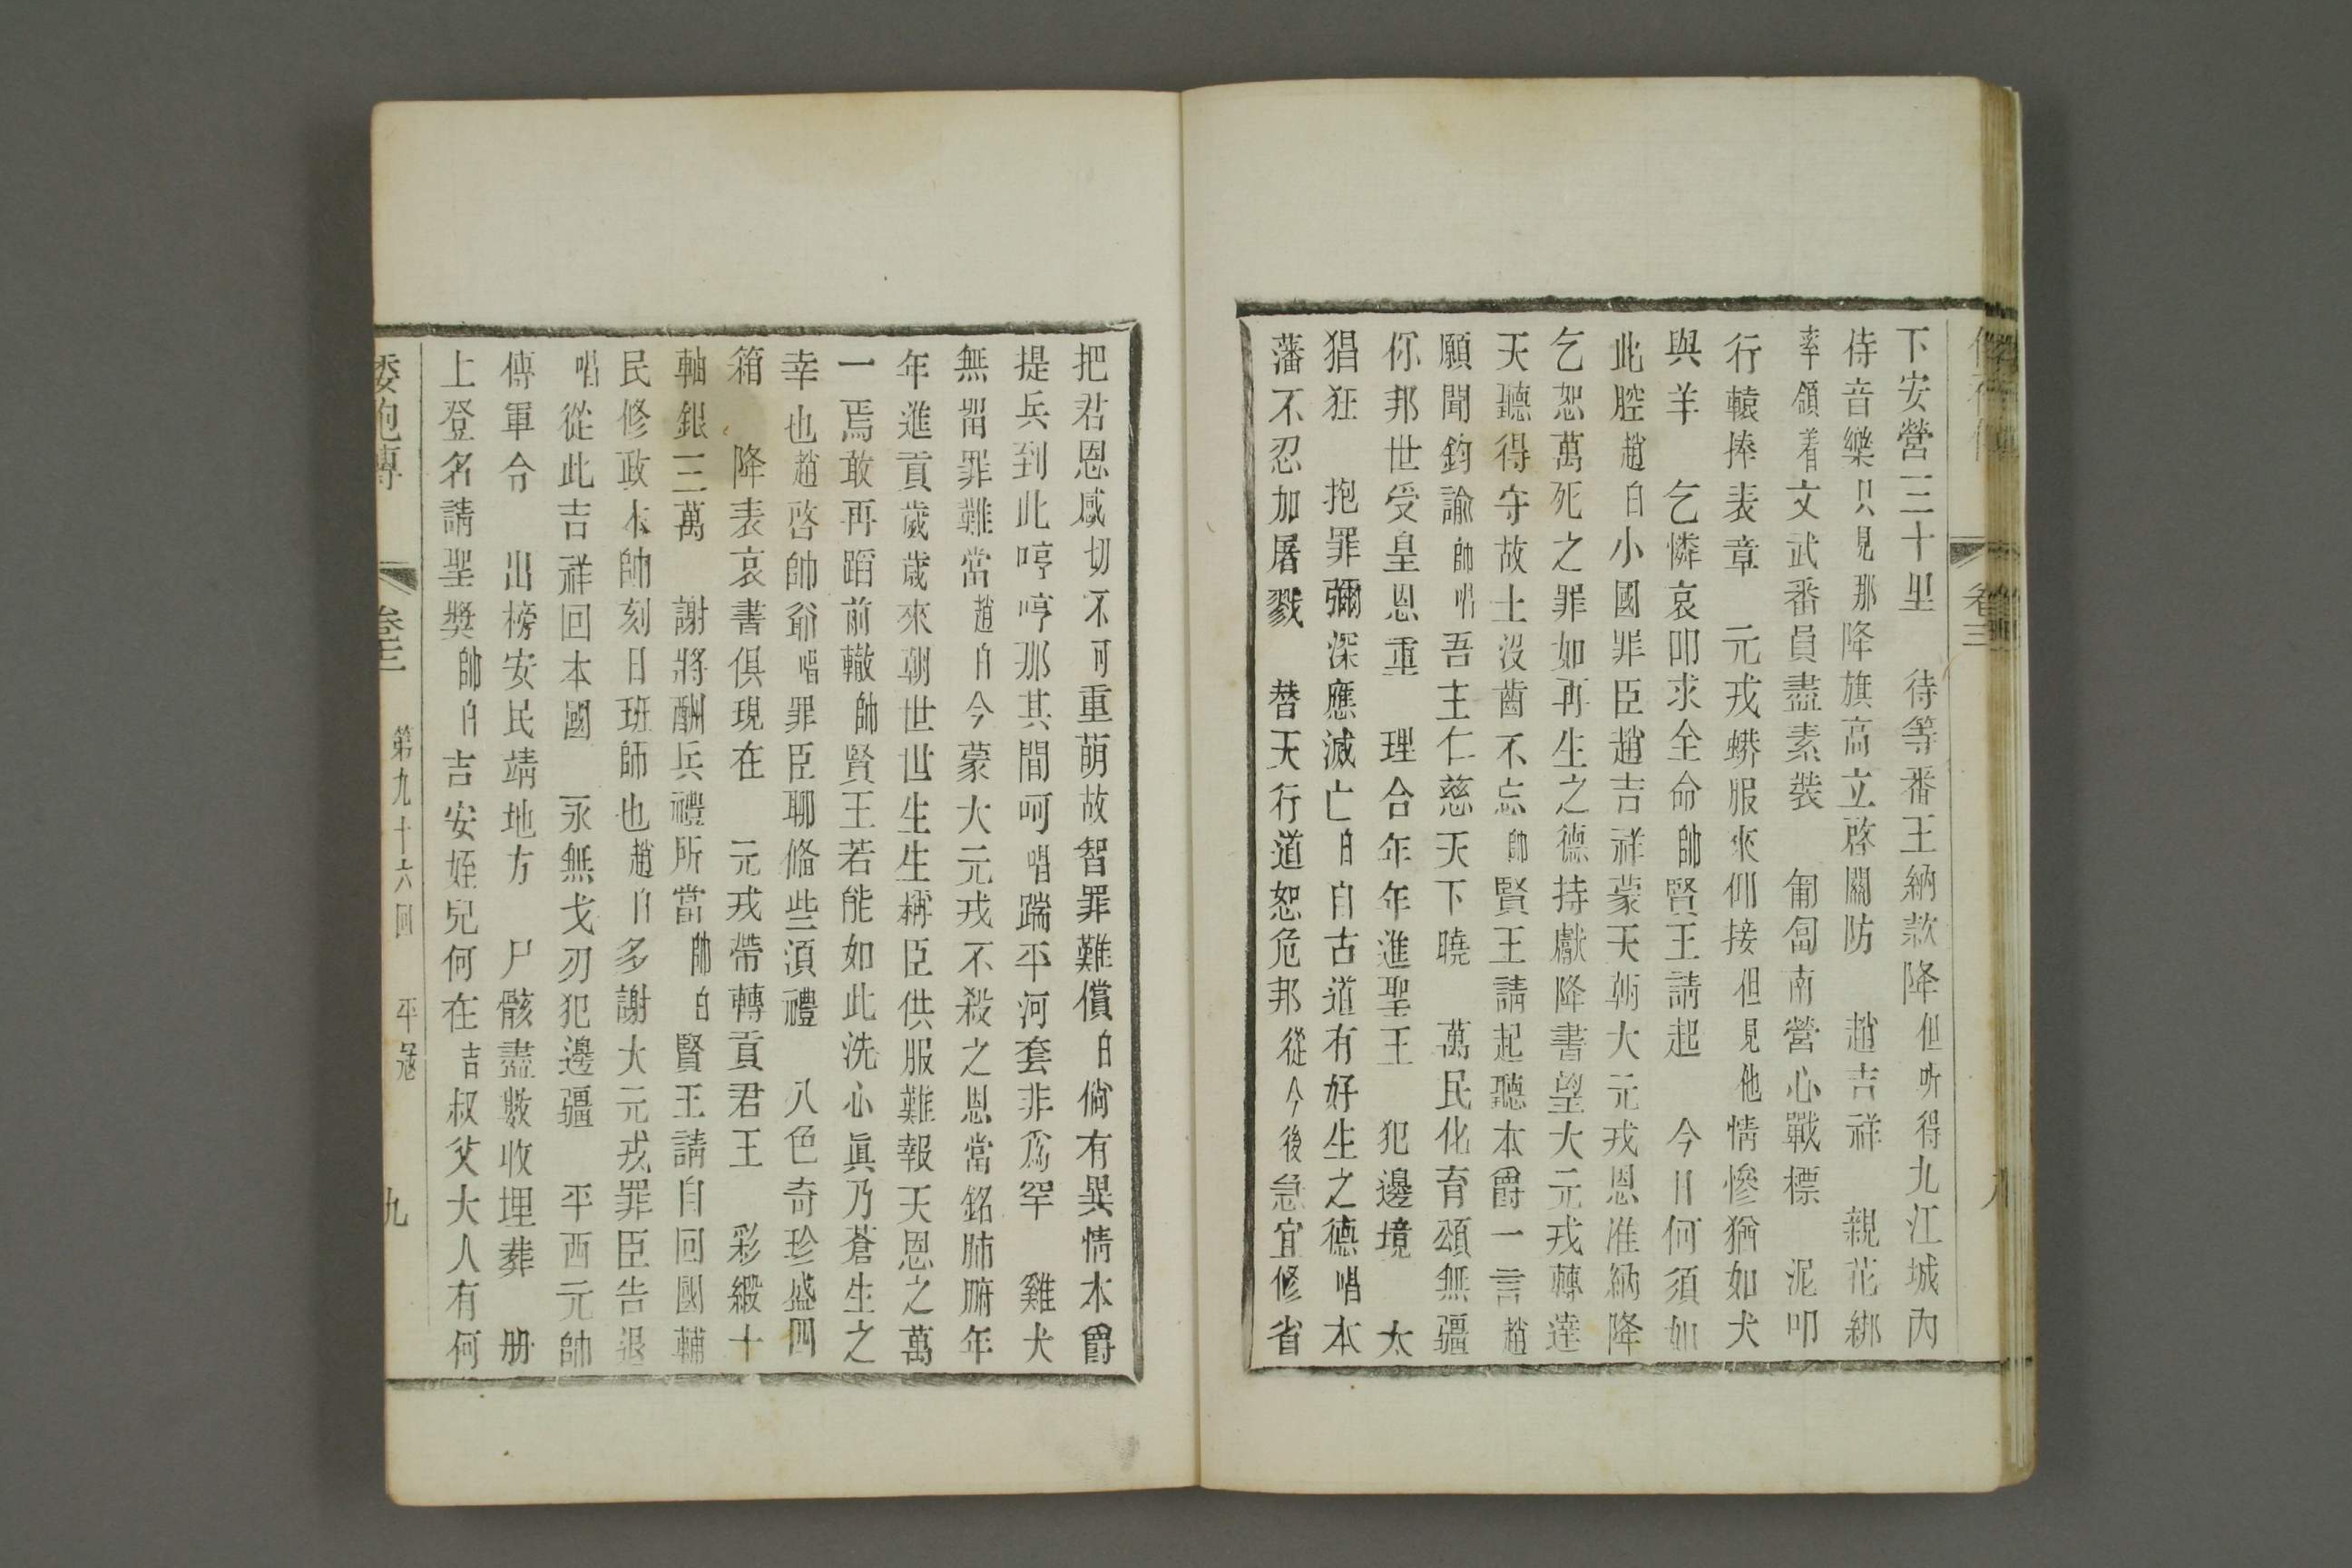 下安營三十里　待等番王納款降但听得九江城內
侍音樂只見那降旗高立啓關防　趙吉祥　親花綁
率領着文武番員盡素裝　匍匐南營心戰標　泥叩
行轅捧表章　元戎蟒服來佣接但見他情慘猶如犬
與羊　乞憐哀叩求全命帥賢王請起　今日何須如
此腔趙白小國罪臣趙吉祥蒙天朝大元戎恩准納降
乞恕萬死之罪如再生之德持獻降書望大元戎轉達
天聽得守故土沒齒不忘帥賢王請起聽本爵一言趙
願聞鈞諭帥唱吾主仁慈天下曉　萬民化育頌無疆
你邦世受皇恩重　理合年年進聖王　犯邊境　太
猖狂　抱罪彌深應滅亡白自古道有好生之德唱本
藩不忍加屠戮　替天行道恕危邦從今後急宜修省
卷三
八
把君恩感切不可重萌故智罪難償白倘有異情本爵
提兵到此哼哼那其間呵唱踹平河套非爲罕　雞犬
無畱罪難當趙白今蒙大元戎不殺之恩當銘肺腑年
年進貢歲歲來朝世世生生稱臣供服難報天恩之萬
一焉敢再蹈前轍帥賢王若能如此洗心眞乃蒼生之
幸也趙啓帥爺唱罪臣聊脩些湏禮　八色奇珍盛四
箱　降表哀書俱現在　元戎帶轉貢君王　彩緞十
軸銀三萬　謝將酬兵禮所當帥白賢王請自回國輔
民修政本帥刻日班師也趙白多謝大元戎罪臣告退
唱從此吉祥回本國　永無戈刃犯邊疆　平西元帥
傳軍令　出榜安民靖地方　尸骸盡數收埋葬　册
上登名請聖獎帥白吉安姪兒何在吉叔父大人有何
倭袍傳　卷三　第九十六回　平寇　九